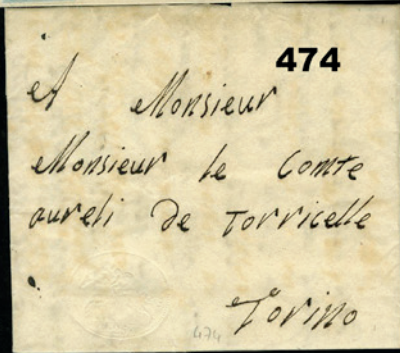 474
A Monsieur
Monsieur le Comte
aureli de Torricelle
Torino
474